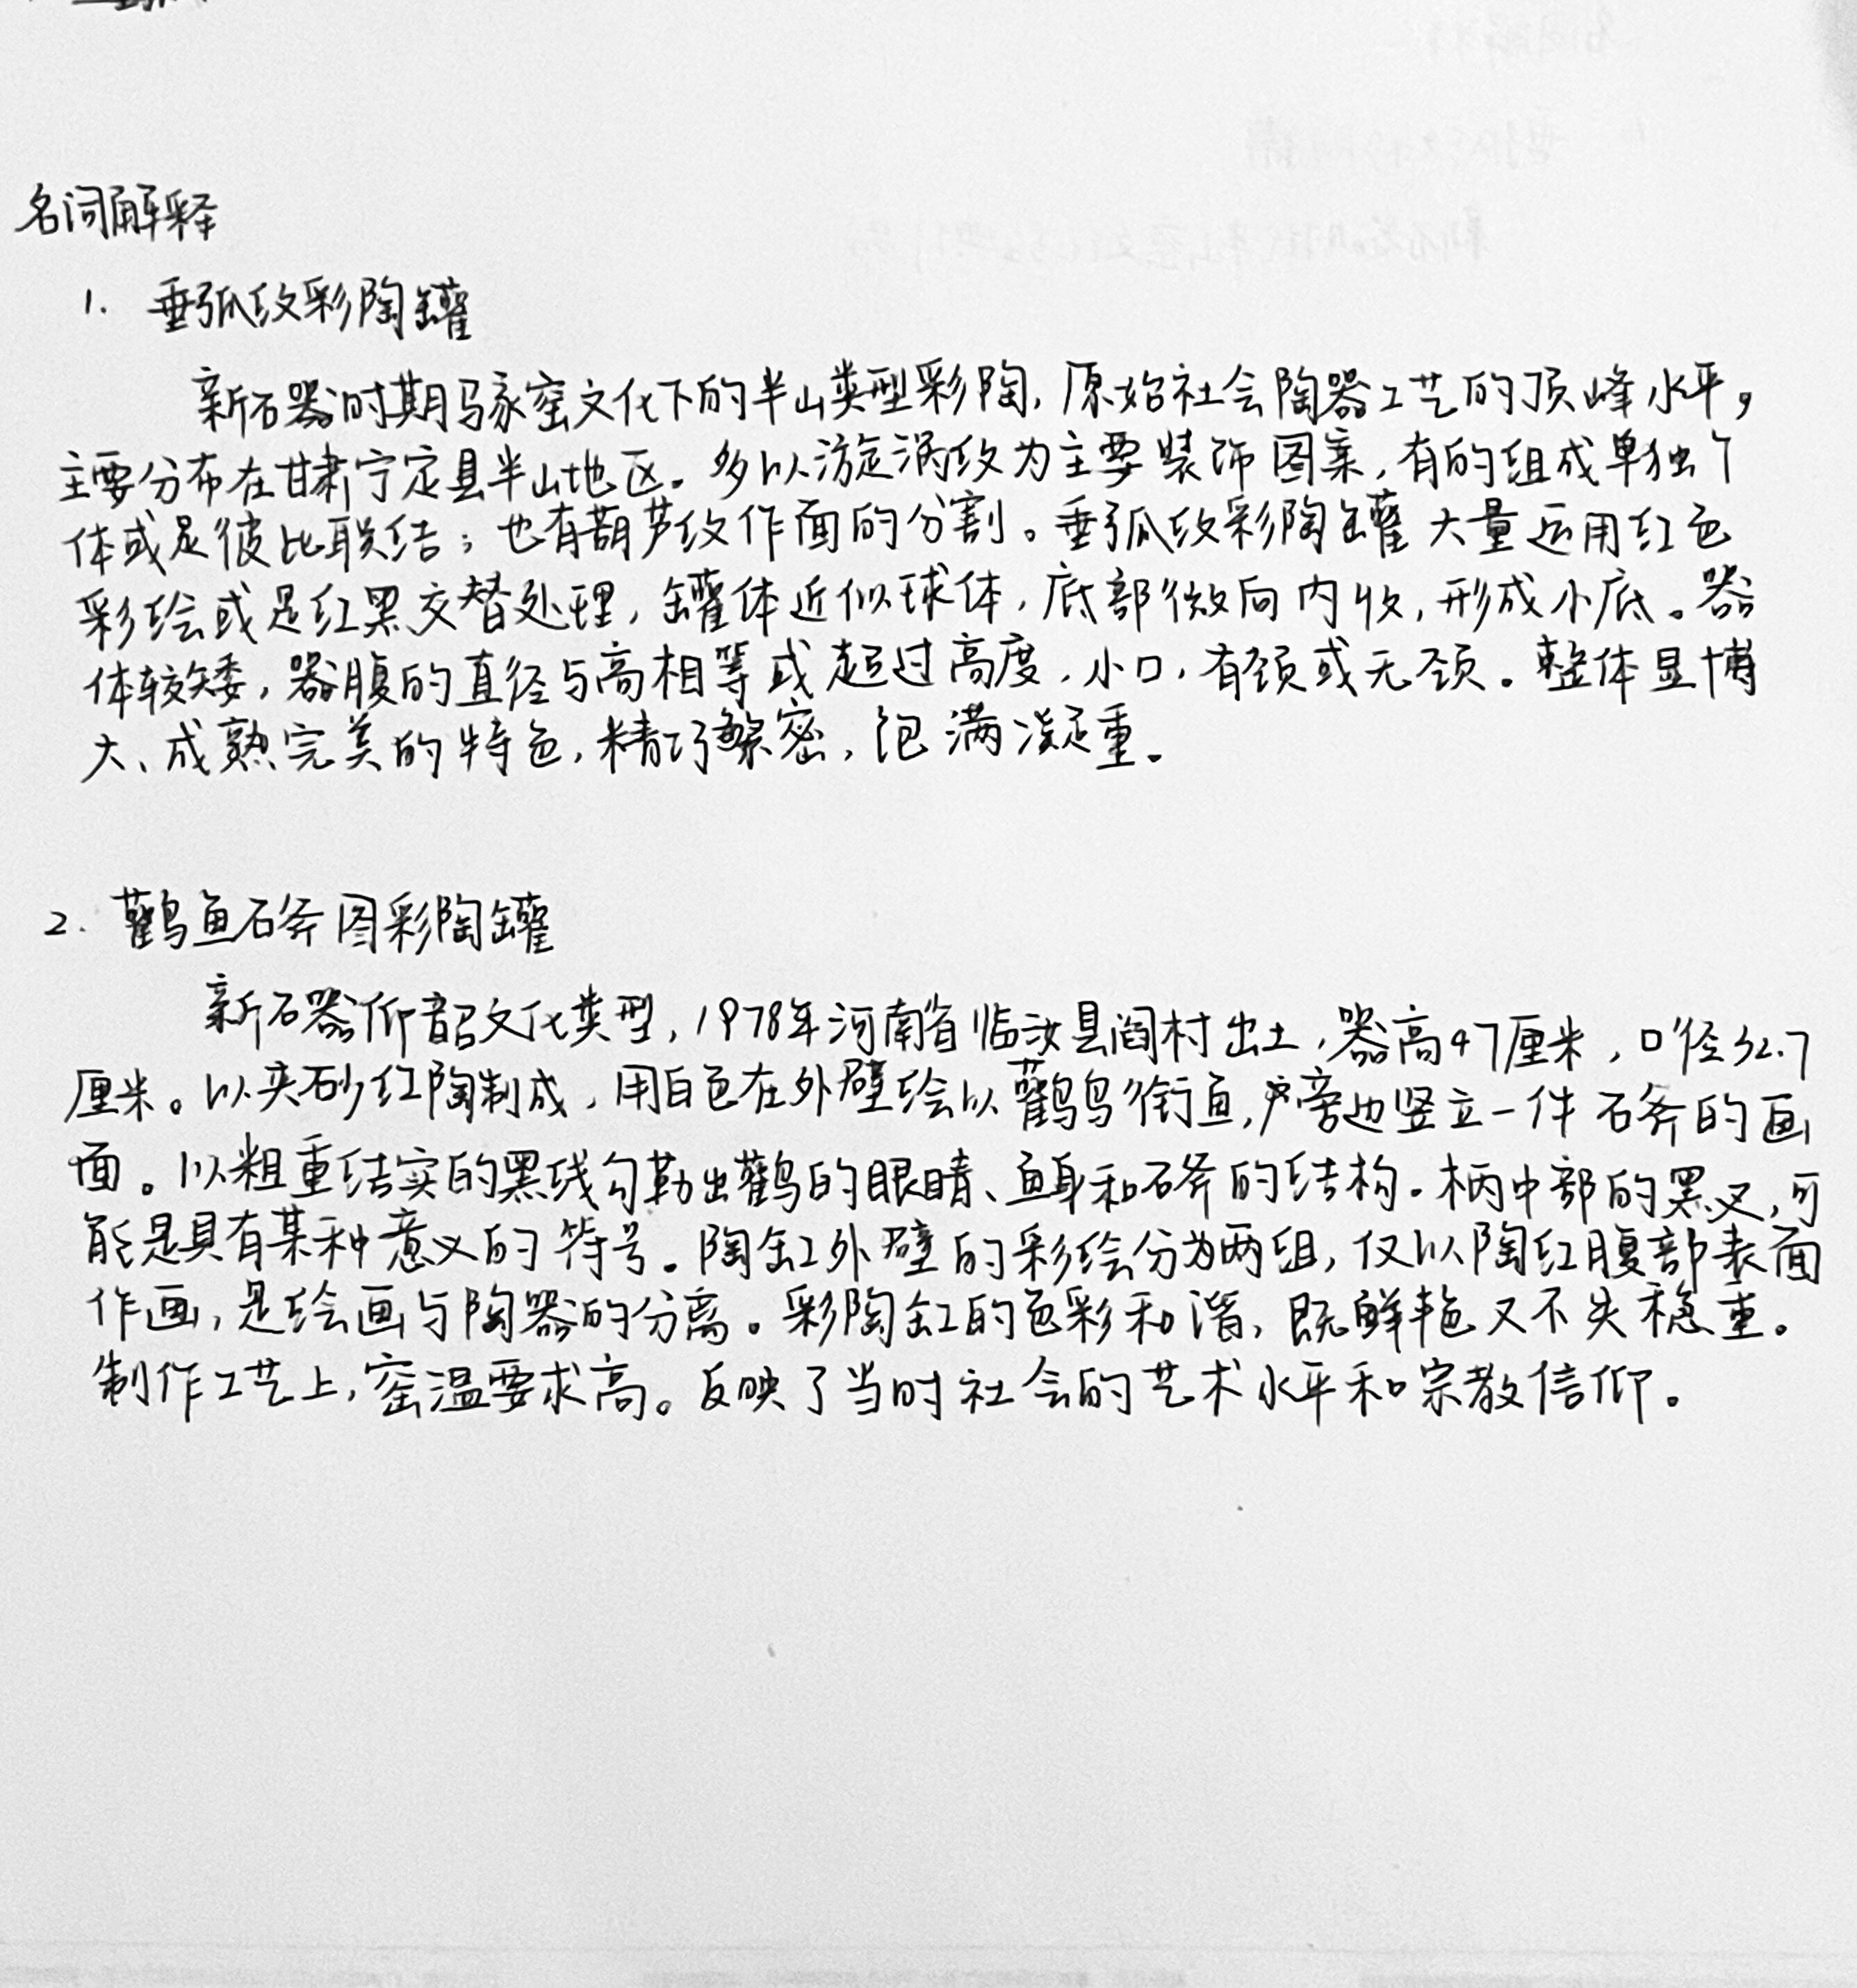 名词解释
1. 垂弧纹彩陶罐
新石器时期马家窑文化下的半山类型彩陶,原始社会陶器工艺的顶峰水平,
主要分布在甘肃宁定县半山地区。多以漩涡纹为主要装饰图案,有的组成单独个
体或是彼此联结;也有葫芦纹作面的分割。垂弧纹彩陶罐大量运用红色
彩绘或是红黑交替处理,罐体近似球体,底部微向内收,形成小底。器
体较矮,器腹的直径与高相等或超过高度,小口,有颈或无颈。整体显博
大、成熟完美的特色,精巧繁密,饱满凝重。
2. 鹳鱼石斧图彩陶罐
新石器仰韶文化类型,1978年河南省临汝县阎村出土,器高47厘米,口径32.7
厘米。以夹砂红陶制成,用白色在外壁绘以鹳鸟衔鱼,旁边竖立一件石斧的画
面。以粗重结实的黑线勾勒出鹳的眼睛、鱼身和石斧的结构。柄中部的黑叉,可
能是具有某种意义的符号。陶缸外壁的彩绘分为两组,仅以陶缸腹部表面
作画,是绘画与陶器的分离。彩陶缸的色彩和谐,既鲜艳又不失稳重。
制作工艺上,窑温要求高。反映了当时社会的艺术水平和宗教信仰。